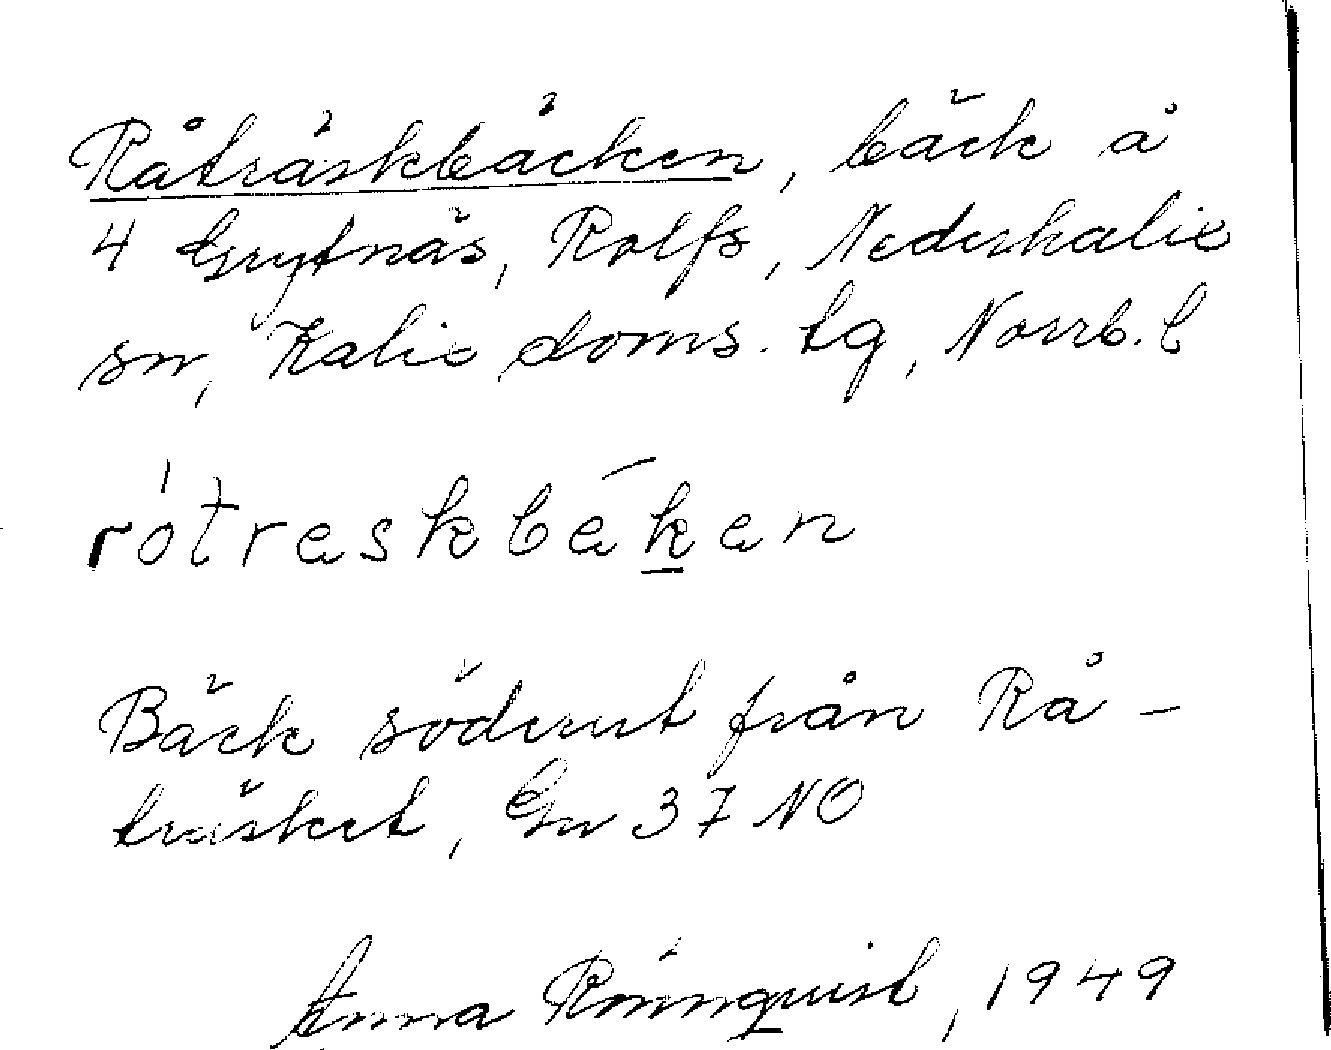 Råträskbäcken, bäck å
4 Grytnäs, Rolfs, Nederkalix
sn, Kalix doms. tg, Norrb. l
rótreskbékan
Bäck söderut från Rå-
träsket, Gn 37 NO
Anna Rönnquist, 1949